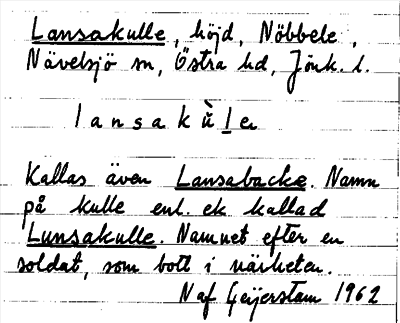 Lansakulle, höjd, Nöbbele,
Nävelsjö sn, Östra hd, Jönk. l.
lansakùlen
Kallas även Lansabacke. Namn
på kulle enl. ek kallad
Lunsakulle. Namnet efter en
soldat, som bott i närheten.
N af Geijerstam 1962